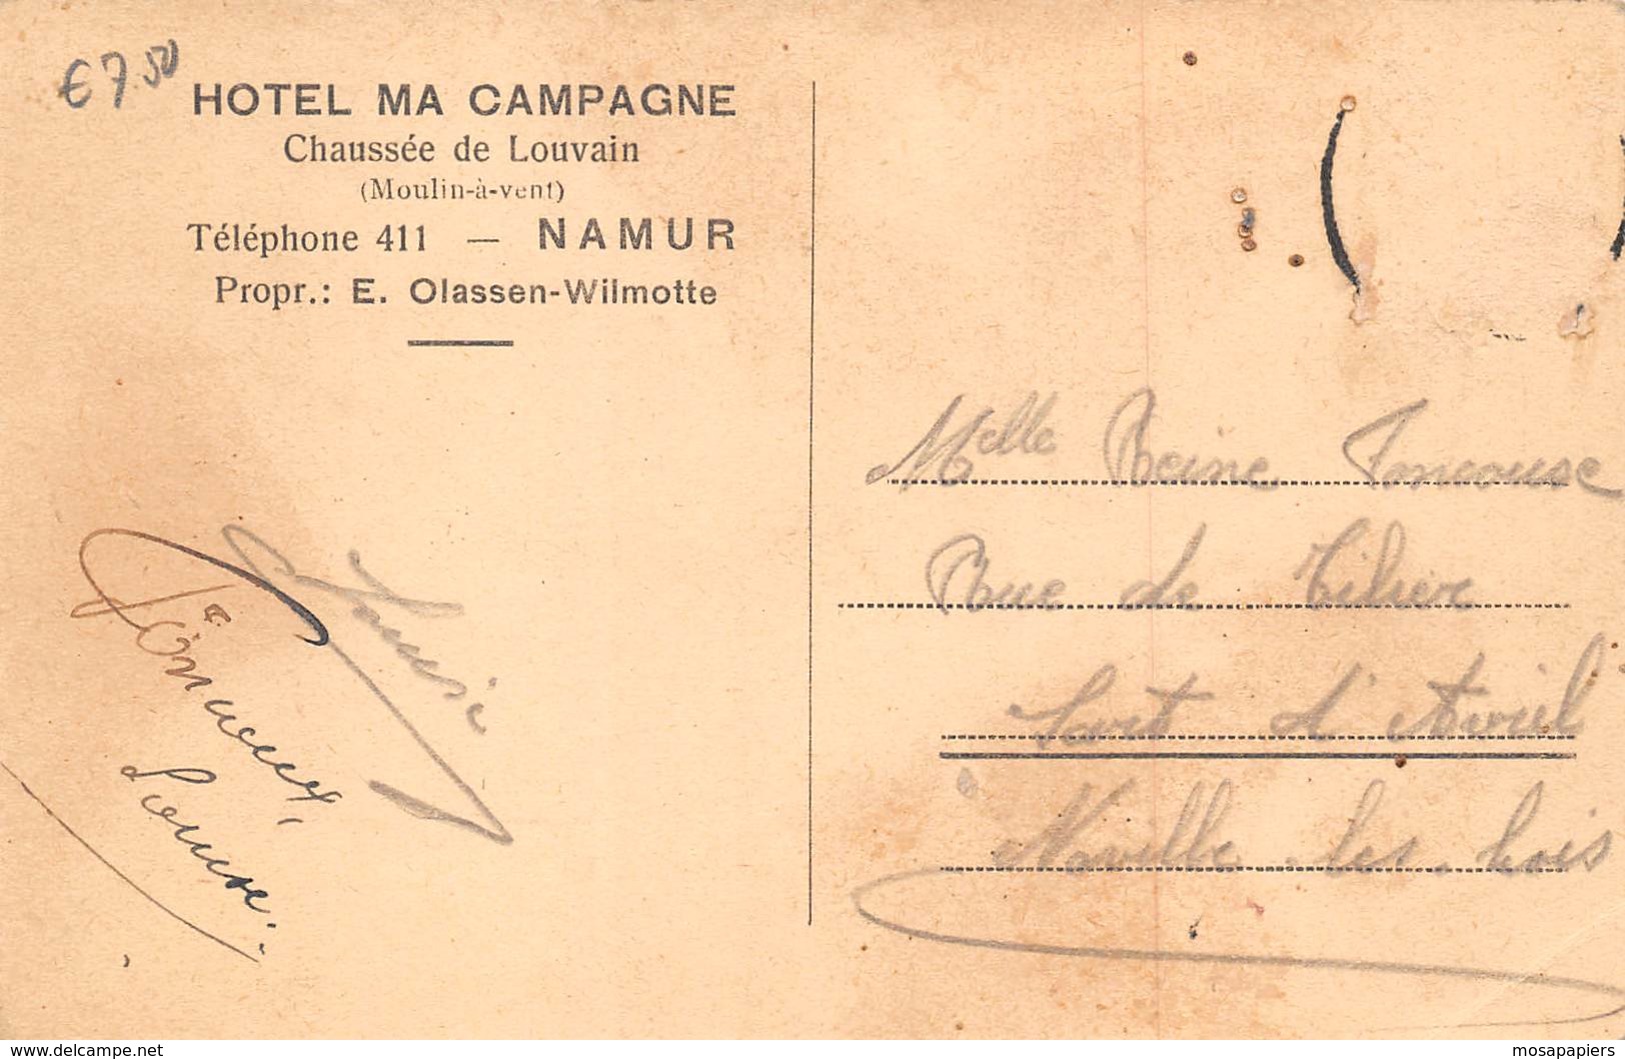 € 7.50
HOTEL MA CAMPAGNE
Chaussée de Louvain
(Moulin-à-vent)
Téléphone 411 — NAMUR
Propr.: E. Olassen-Wilmotte
Melle Reine
Rue de
Sart d'Avril
Noville-les-bois
www.delcampe.net
mosapapiers